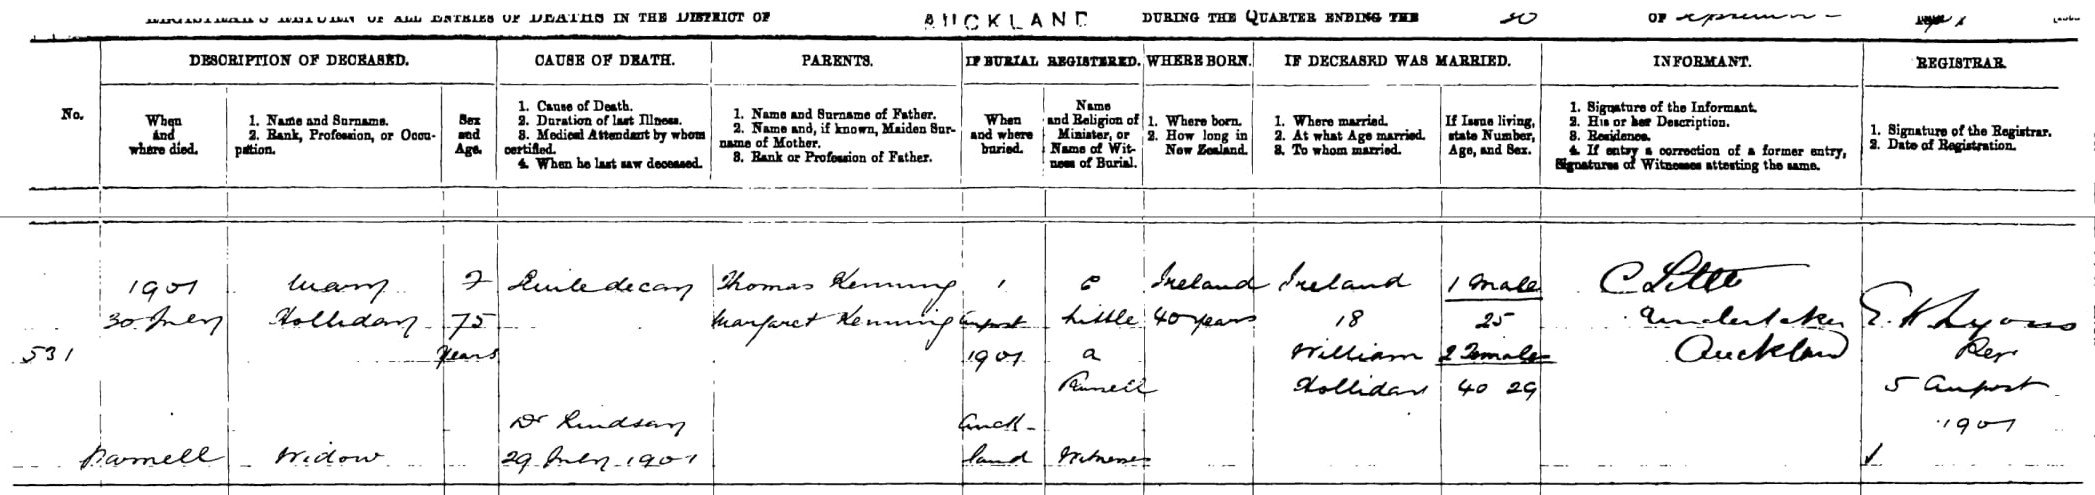 REGISTRAR'S RETURN OF ALL ENTRIES OF DEATHS IN THE DISTRICT OF AUCKLAND DURING THE QUARTER ENDING THE 30 OF
DESCRIPTION OF DECEASED. CAUSE OF DEATH. PARENTS. IF BURIAL REGISTERED. WHERE BORN. IF DECEASED WAS MARRIED. INFORMANT. REGISTRAR
No.
When
and
where died.
1. Name and Surname.
2. Rank, Profession, or Occu-
pation.
Sex
and
Age.
1. Cause of Death.
2. Duration of last Illness.
3. Medical Attendant by whom
certified.
4. When he last saw deceased.
1. Name and Surname of Father.
2. Name and, if known, Maiden Sur-
name of Mother.
3. Rank or Profession of Father.
When
and where
buried.
Name
and Religion of
Minister, or
Name of Wit-
ness of Burial.
1. Where born.
2. How long in
New Zealand.
1. Where married.
2. At what Age married.
3. To whom married.
If Issue living,
state Number,
Age, and Sex.
1. Signature of the Informant.
2. His or her Description.
3. Residence.
4. If entry a correction of a former entry,
Signatures of Witnesses attesting the same.
1. Signature of the Registrar.
2. Date of Registration.
531
1901
30 July
Parnell
Mary
Holliday
Widow
F
75
Years
Senile decay
Dr Lindsay
29 July 1901
Thomas Kenning
Margaret Kenning
1
August
1901
Auck-
land
C
Little
A
Witnesses
Ireland
40 years
Ireland
18
William
Holliday
1 Male
25
2 Females
40 29
C Little
Undertaker
Auckland
E. H. Lyons
5 August
1901